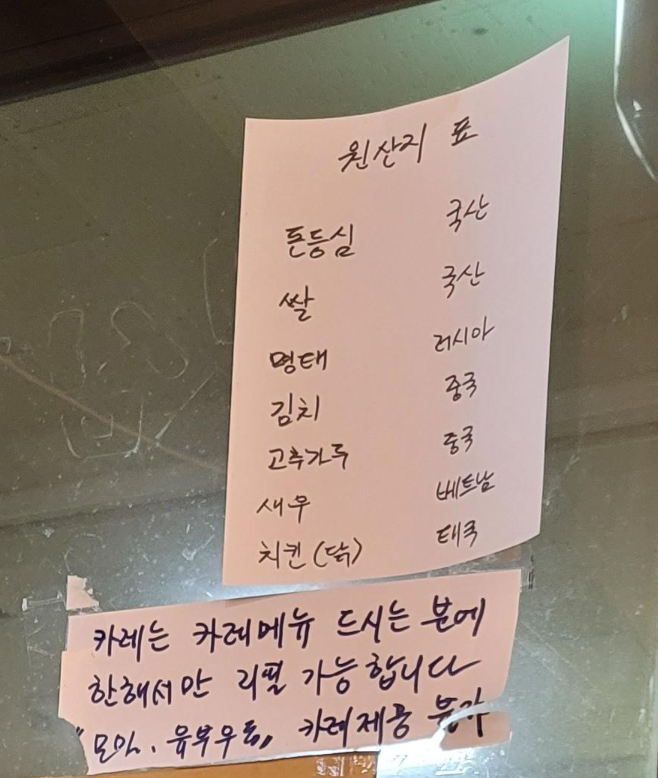 원산지 표
돈등심 국산
쌀 국산
명태 러시아
김치 중국
고추가루 중국
새우 베트남
치킨 (닭) 태국
카레는 카레메뉴 드시는 분에
한해서만 리필 가능합니다
"모밀, 유부우동" 카레제공 불가